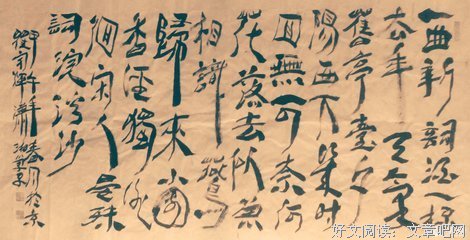 一曲新詞酒一杯
去年天氣
舊亭臺夕
陽西下幾時
回無可奈何
花落去似曾
相識燕
歸來小園
香徑獨徘
徊宋人晏殊
詞浣溪沙
年春月於京
好文阅读：文章吧网